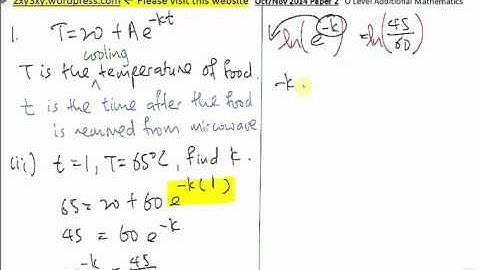 zxy3xy.wordpress.com ← Please visit this website
Oct/Nov 2014 Paper 2 O Level Additional Mathematics
1. T=20+Ae^-kt
cooling
T is the temperature of food.
t is the time after the food
is removed from mircowave
(ii) t=1, T=65°C, find k.
65=20+60e^-k(1)
45 = 60e^-k
e^-k = 45
ln(e^-k) = ln(45/60)
-k